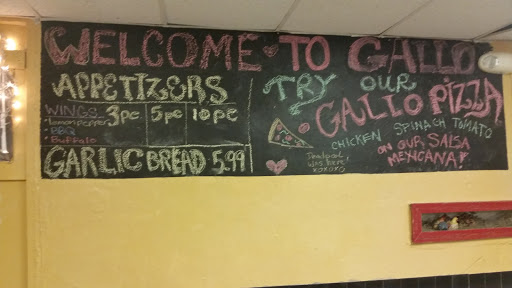 WELCOME TO GALLO
APPETIZERS
WINGS 3pc 5pc 10pc
- Lemon Pepper
- BBQ
- Buffalo
GARLIC BREAD 5.99
TRY OUR
GALLO PIZZA
CHICKEN SPINACH TOMATO
ON OUR SALSA
MEXICANA!
was here!
xoxoxo